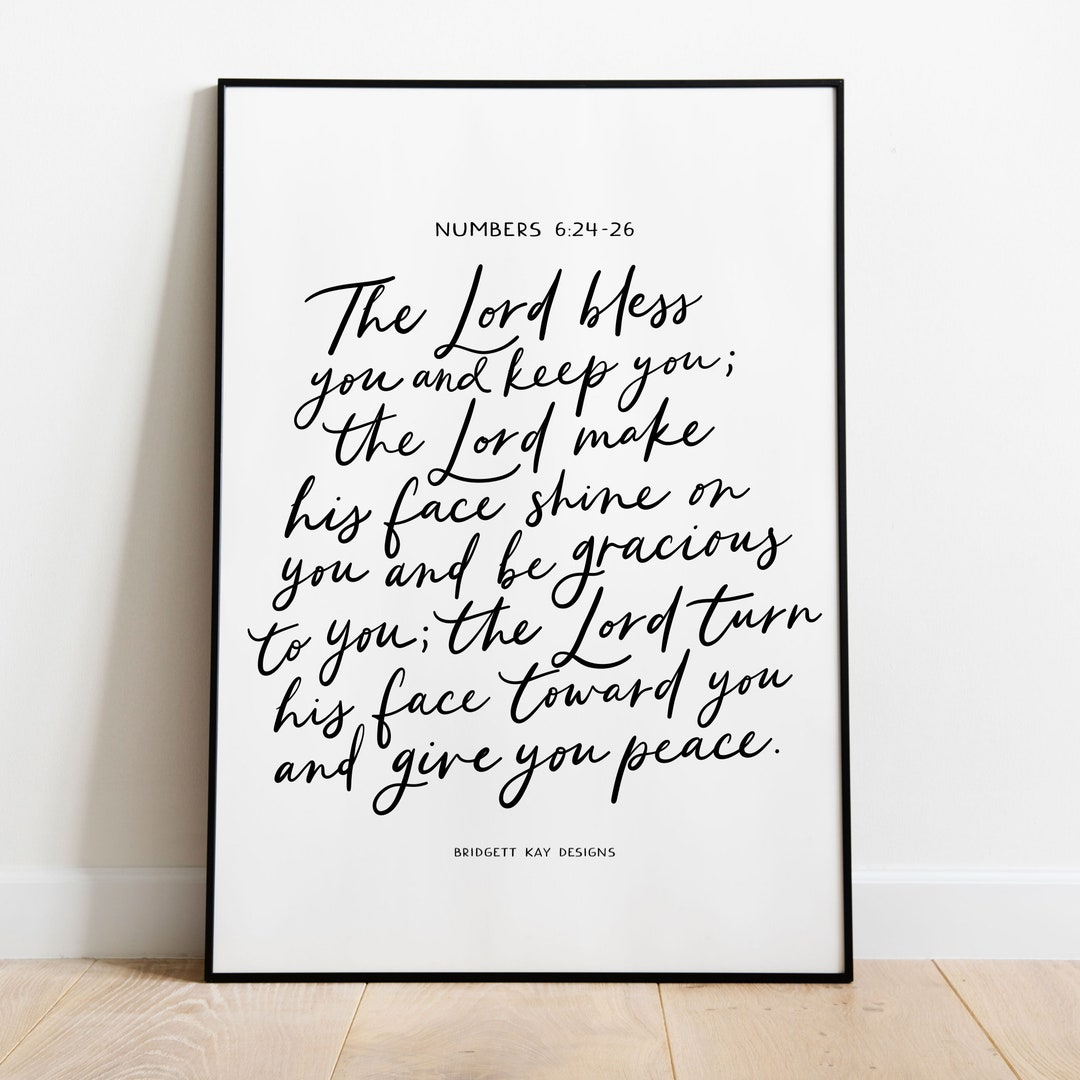 NUMBERS 6:24-26
The Lord bless
you and keep you;
the Lord make
his face shine on
you and be gracious
to you; the Lord turn
his face toward you
and give you peace.
BRIDGETT KAY DESIGNS